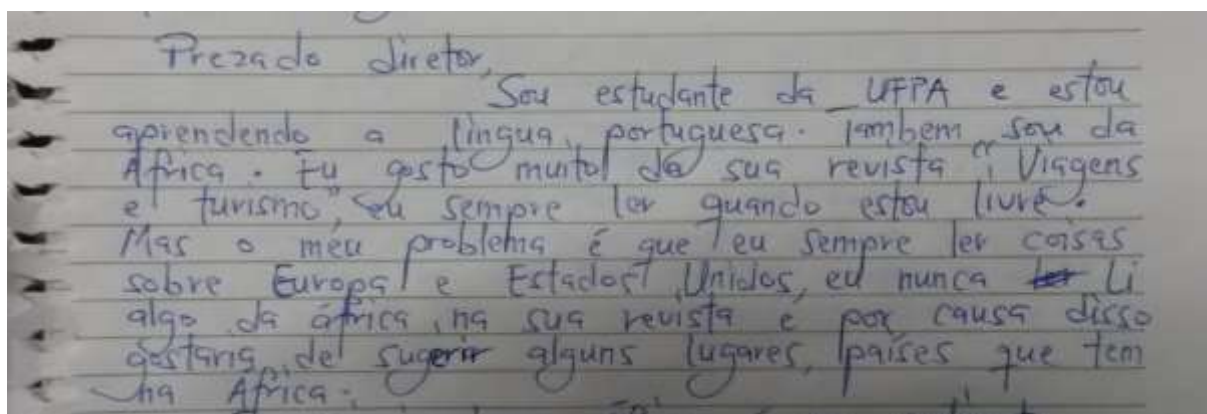 Prezado diretor,
Sou estudante da UFPA e estou
aprendendo a língua portuguesa. Tambem sou da
Africa. Eu gosto muito da sua revista "Viagens
e turismo", eu sempre ler quando estou livre.
Mas o meu problema é que eu sempre ler coisas
sobre Europa e Estados Unidos, eu nunca Li
algo da áfrica, na sua revista e por causa disso
gostaria de sugerir alguns lugares, países que tem
na Africa.